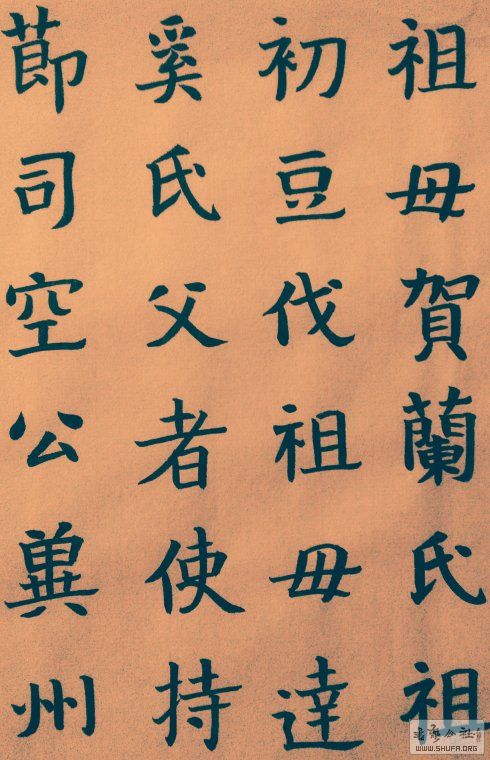 祖毋賀蘭氏祖
初豆伐祖毋達
奚氏父者使持
莭司空公兾州
WWW.SHUFA.ORG